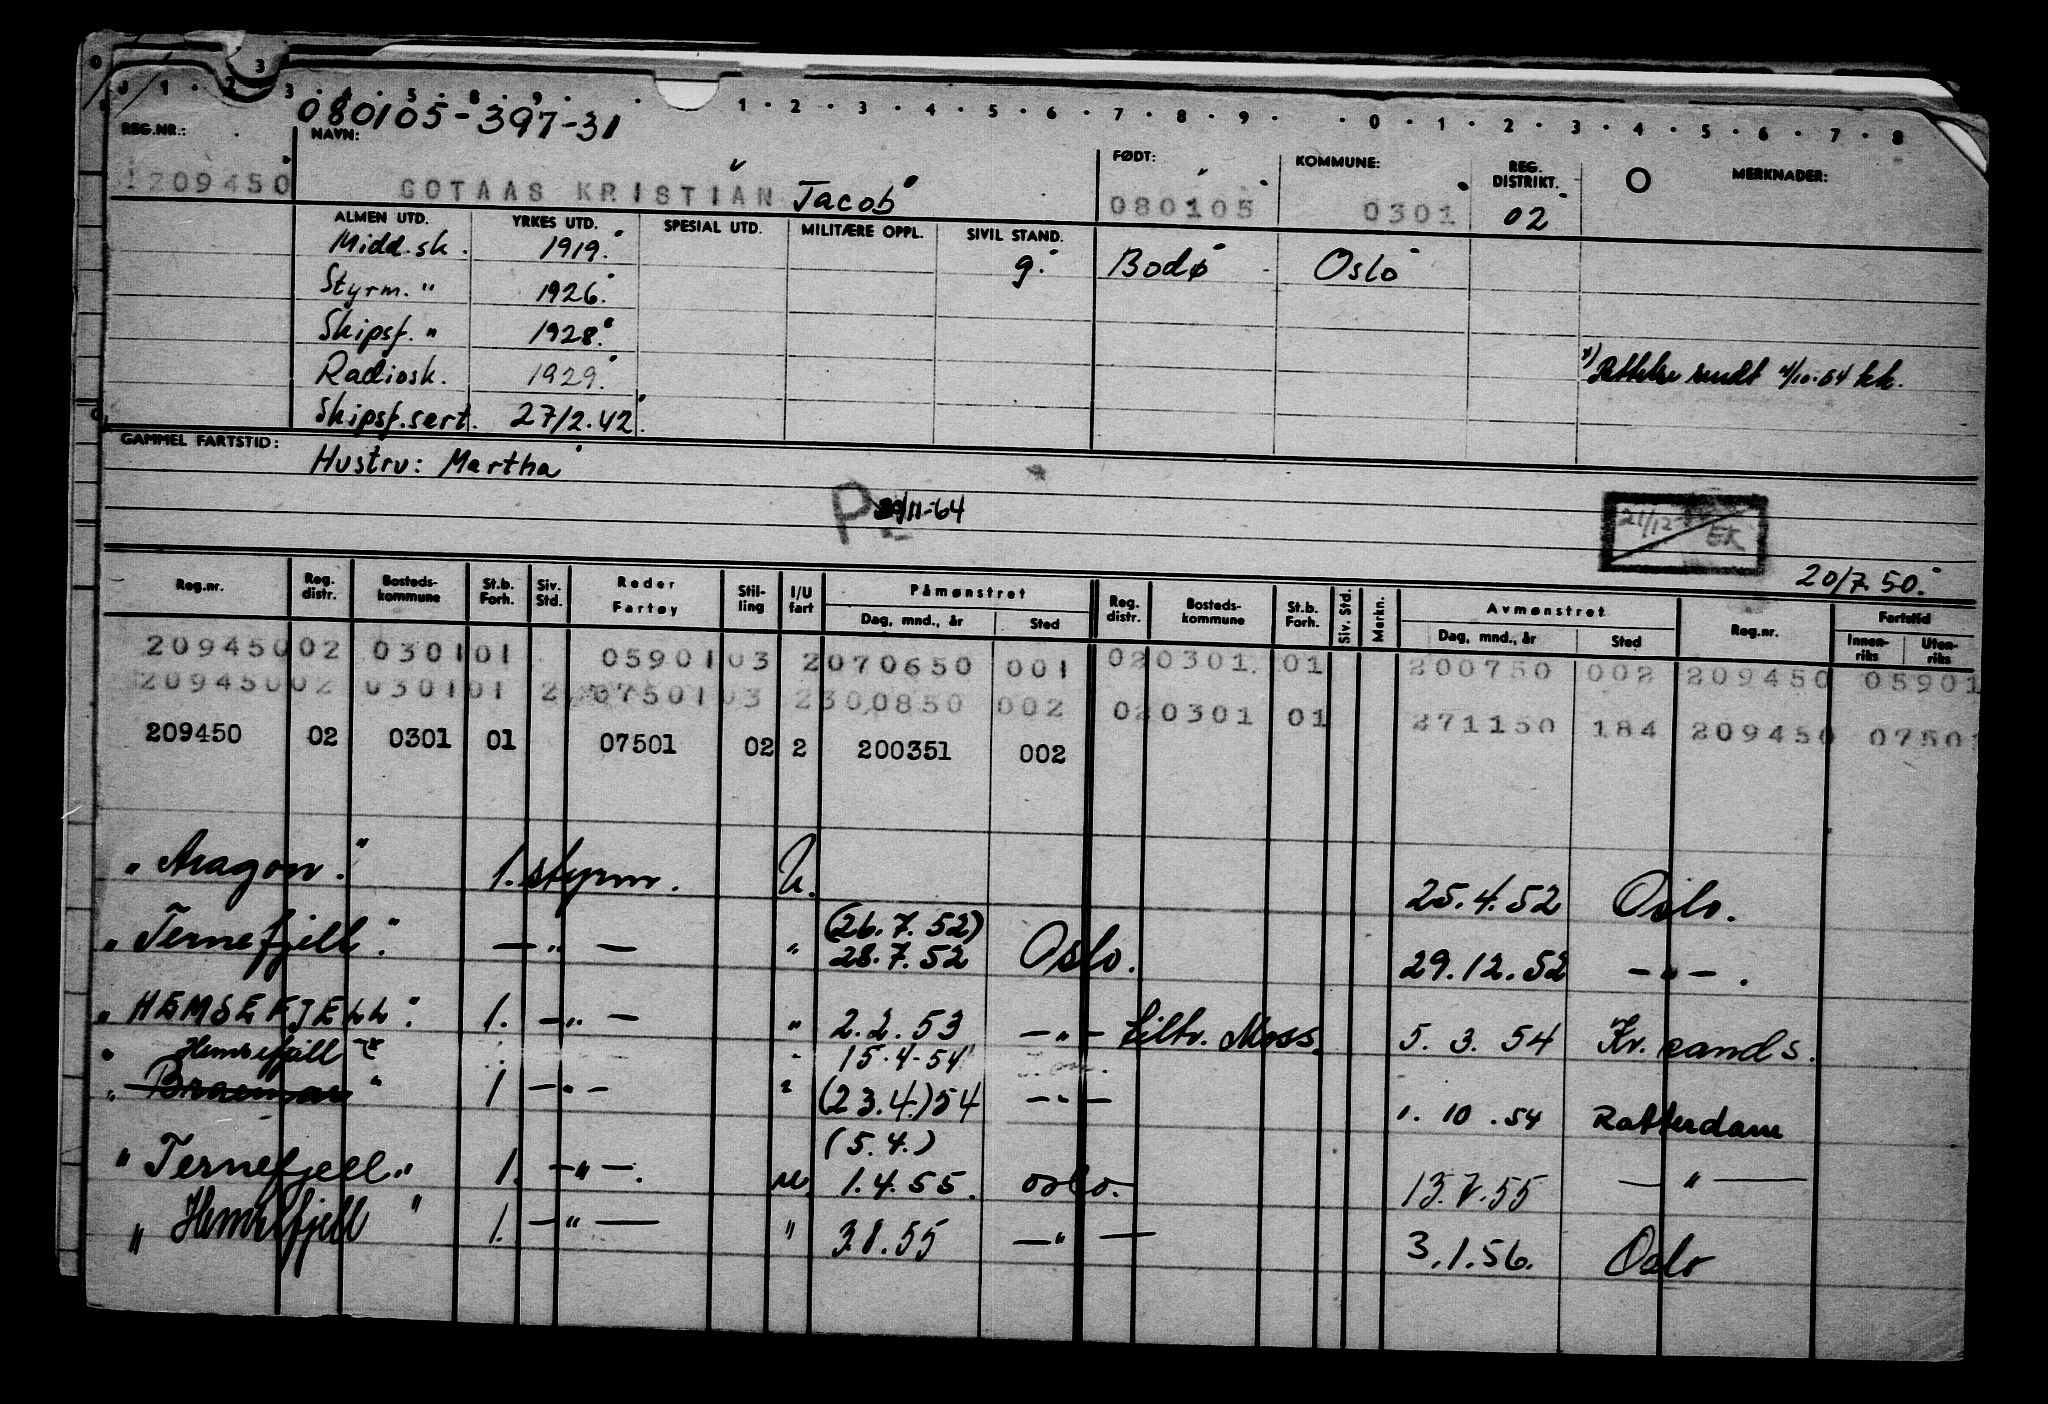 0 3
1 · 2 3 · 4 · 5 · 8 · 9 · · 1 · 2 · 3 · 4 · 5 · 6 · 7 · 8 · 9 · · 0 · 1 · 2 · 3 · 4 · 5 · 6 · 7 · 8
080105-397-31
REG.NR.: NAVN: FØDT: KOMMUNE: REG. DISTRIKT. O MERKNADER:
1209450 GOTAAS KRISTIAN Jacob 080105 0301 02
ALMEN UTD. YRKES UTD. SPESIAL UTD. MILITÆRE OPPL. SIVIL STAND.
Midd.sk. 1919. g. Bodø Oslo
Styrm. " 1926.
Skipsf. " 1928.
Radiosk. 1929. x) Rettelse sendt 4/10-54 kk.
Skipsf.sert. 27/2.42.
GAMMEL FARTSTID: Hustru: Martha
P. /11-64 21/12 EK
20/7 50.
Reg.nr. Reg. distr. Bosteds-kommune St.b. Forh. Siv. Std. Reder Fartøy Stil-ling I/U fart Påmønstret Dag, mnd., år Sted Reg. distr. Bosteds-kommune St.b. Forh. Siv. Std. Merkn. Avmønstret Dag, mnd., år Sted Reg.nr. Fartstid Innen-riks Uten-riks
209450 02 0301 01 05901 03 2 070650 001 02 0301 01 200750 002 209450 05901
209450 02 0301 01 2 07501 03 2 300850 002 02 0301 01 271150 184 209450 07501
209450 02 0301 01 07501 02 2 200351 002
" Aragon." 1. styrm. U. 25.4.52 Oslo.
" Ternefjell." — " — " (26.7.52) 28.7.52 Oslo. 29.12.52 — " — .
" HEMSEFJELL". 1. — " — " 2.2.53 — " — tiltr. Moss. 5. 3. 54 Kr.sands.
" Hemsefjell x - 15-4-54
" Braemar " 1 — " — " (23.4.)54 — " — 1. 10 .54 Rotterdam
" Ternefjell." 1. — " — . u. (5.4.) 1.4.55. oslo. 13.7.55 — " —
" Hemsefjell " 1. — " — " 3.8.55 — " — 3.1.56. Oslo